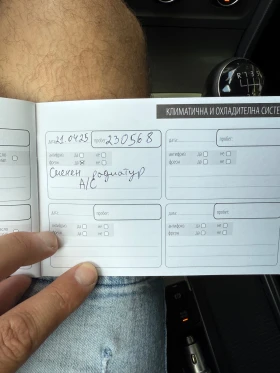 КЛИМАТИЧНА И ОХЛАДИТЕЛНА СИСТЕ
ДАТА 21.04.25 ПРОБЕГ 230568
антифриз да не
фреон да не
Сменен радиатур
A/C
ДАТА ПРОБЕГ
антифриз да не
фреон да не
ДАТА ПРОБЕГ
да не
фреон да не
ДАТА ПРОБЕГ
антифриз да не
фреон да не